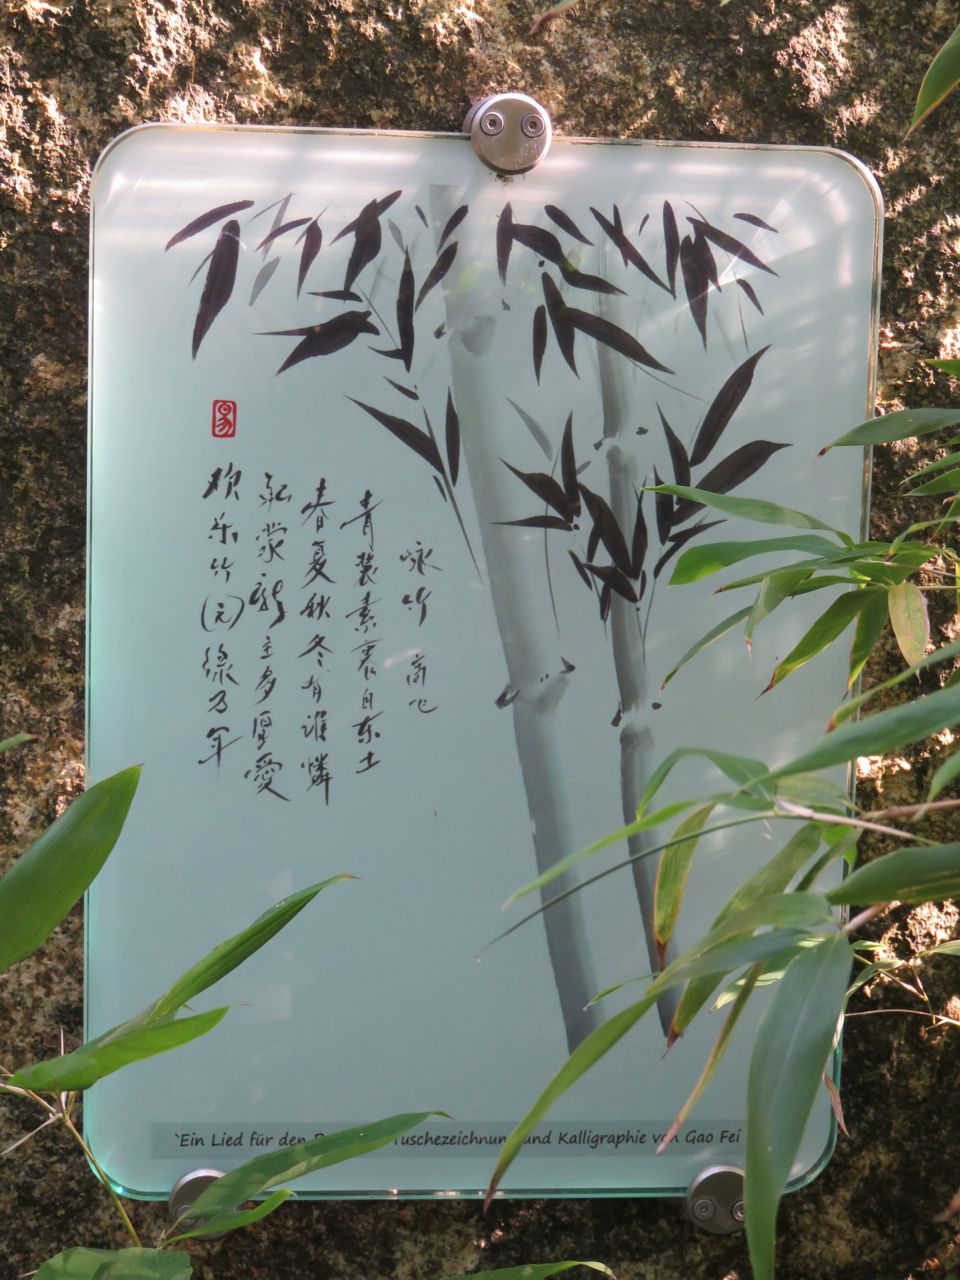 咏竹 高飞
青装素裹自东土
春夏秋冬有谁憐
承蒙新主多厚愛
欢乐竹园綠万年
`Ein Lied für den Tuschezeichnung und Kalligraphie von Gao Fei